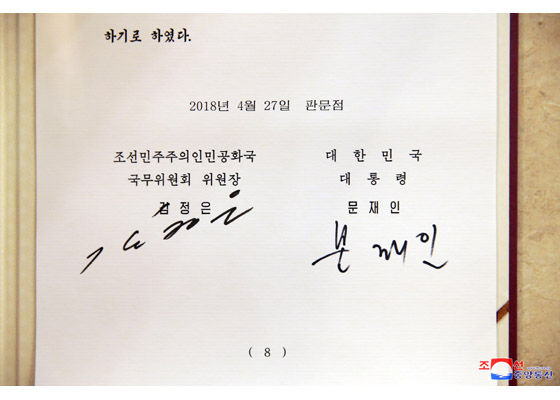 하기로 하였다.
2018년 4월 27일 판문점
조선민주주의인민공화국 대 한 민 국
국무위원회 위원장 대 통 령
김 정 은 문 재 인
문 재 인
( 8 )
조선
중앙통신